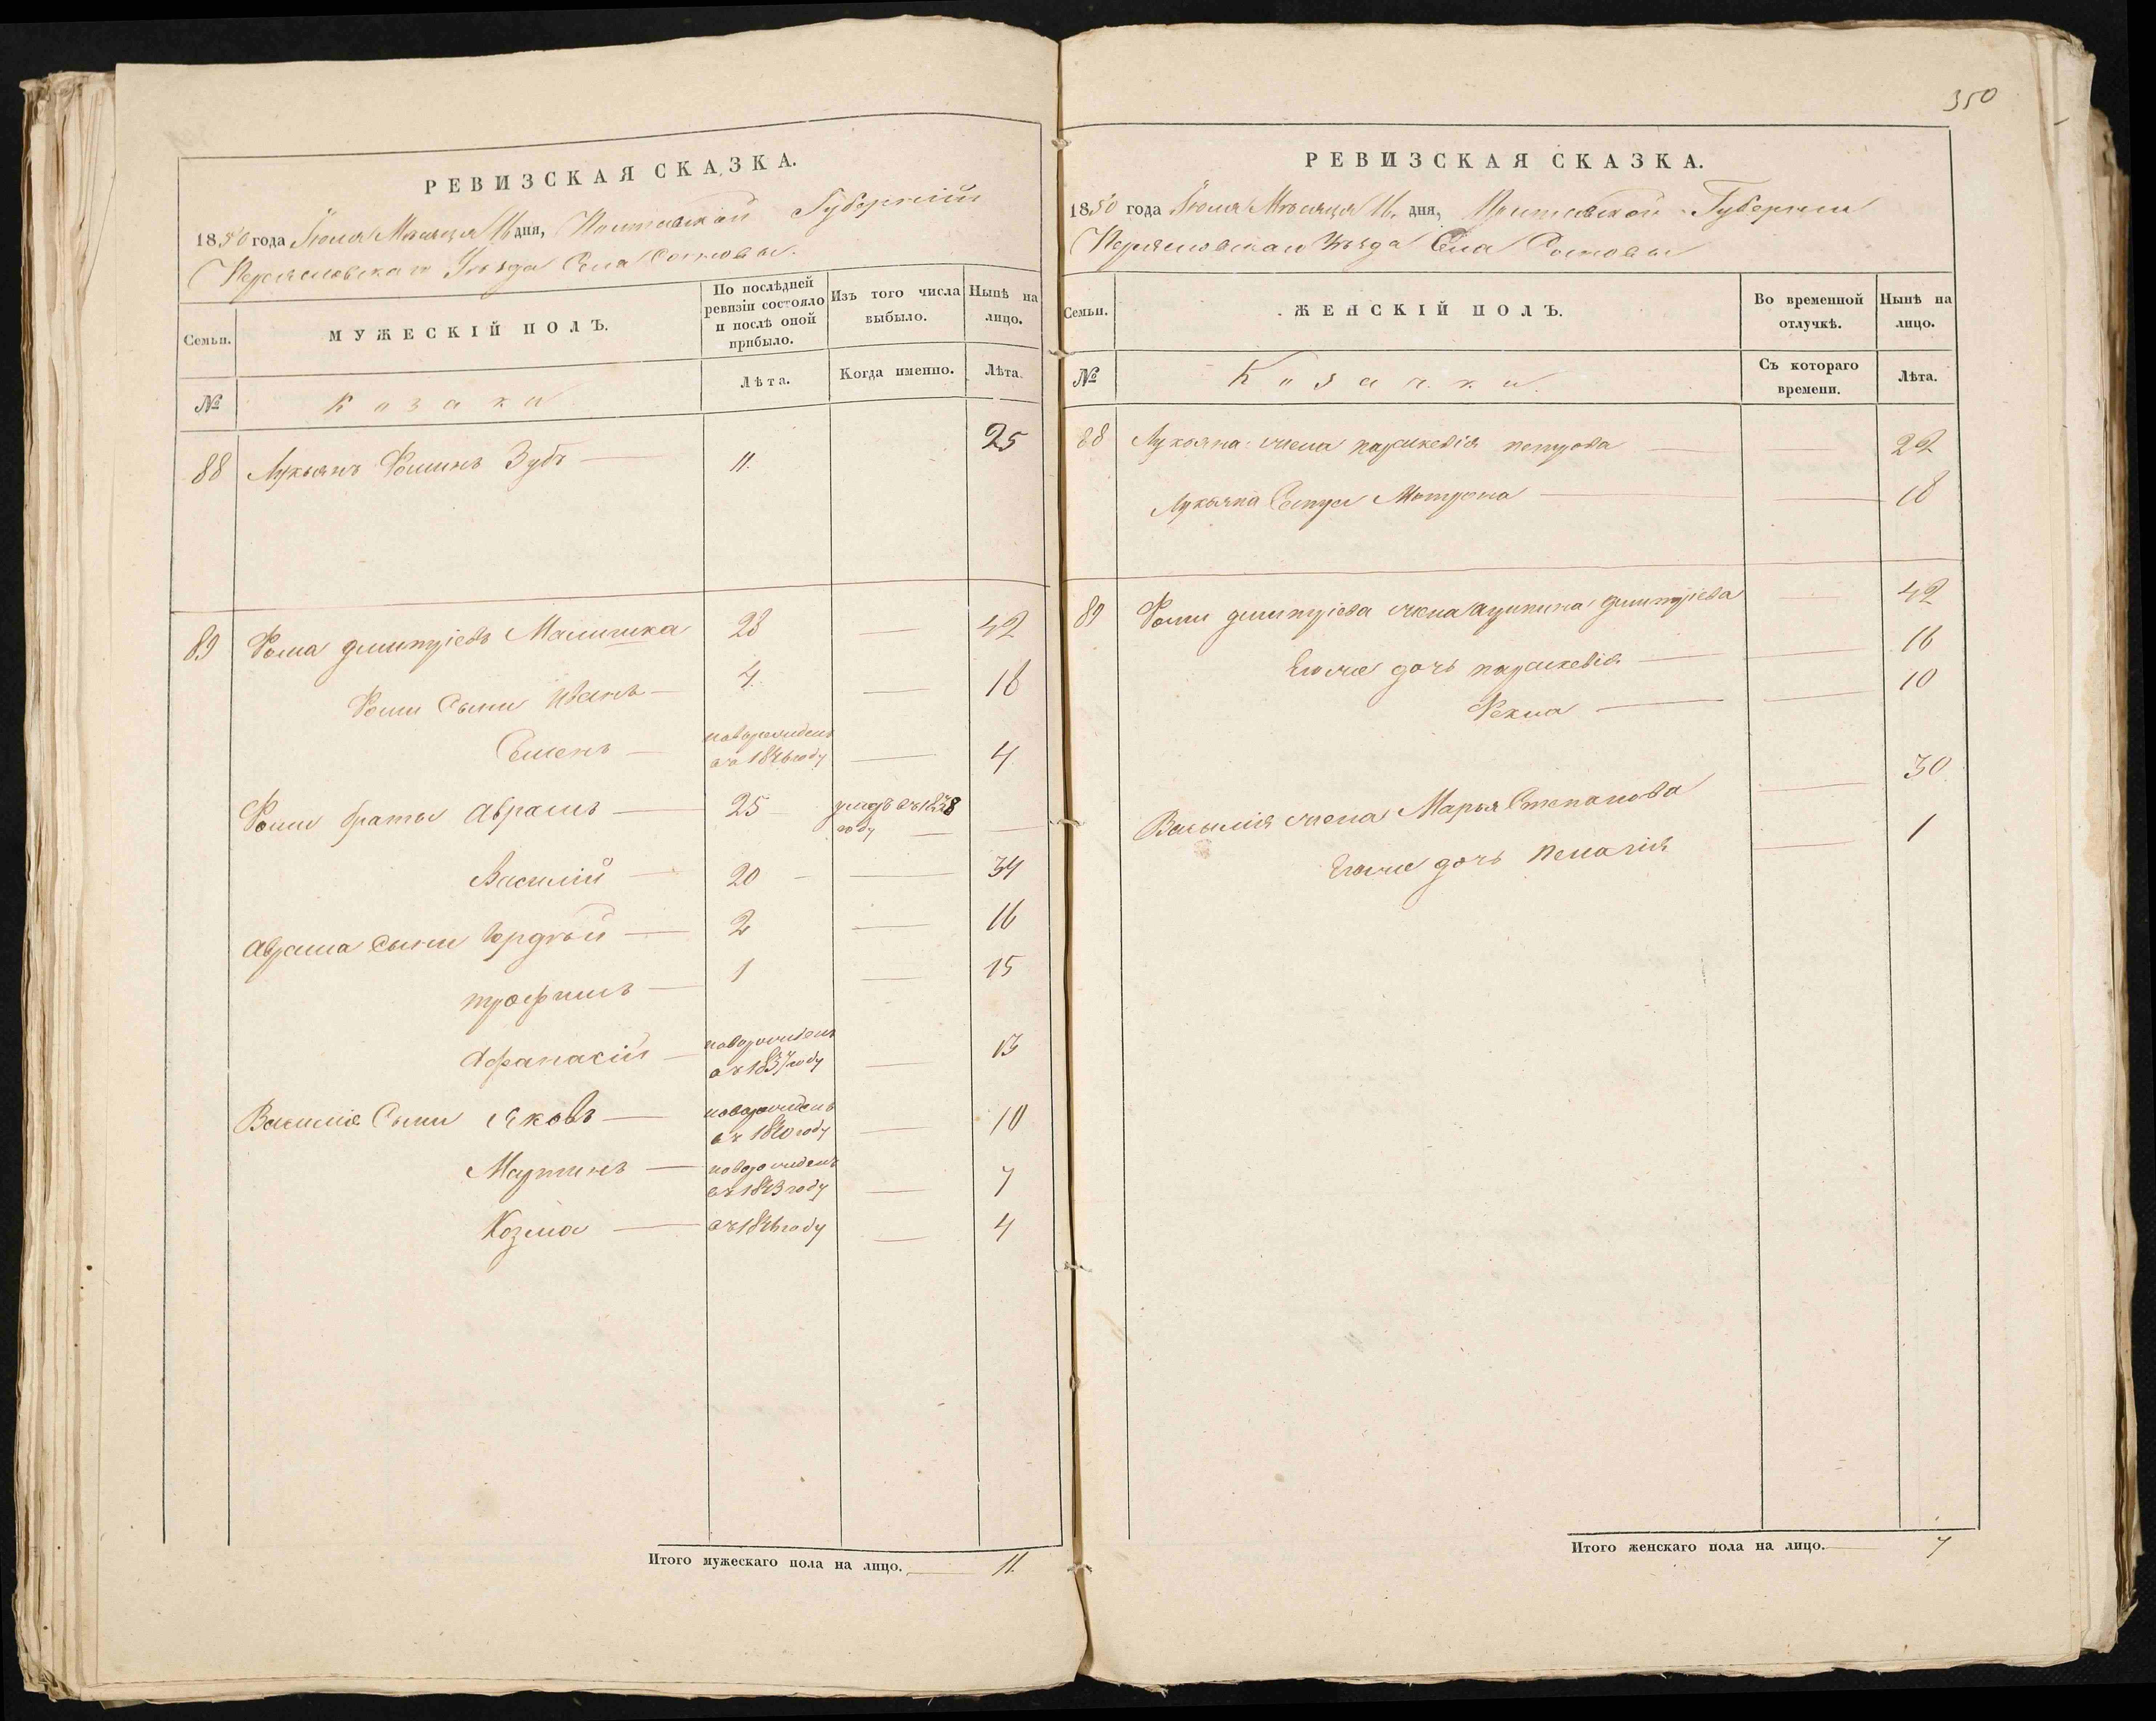 РЕВИЗСКАЯ СКАЗКА.
1850 года Іюля Мѣсяца 16 дня, Полтавской Губерніи
Переясловскаго Уѣзда Села Сосновы.
Семьи.
МУЖЕСКІЙ ПОЛЪ.
По послѣдней ревизіи состояло и послѣ оной прибыло.
Изъ того числа выбыло.
Нынѣ на лицо.
№
Козаки
Лѣта.
Когда именно.
Лѣта.
88 Лукьянъ Фоминъ Зубъ — 11. 25
89 Фома дмитріевъ 28 — 42
Фомы Сыны Иванъ — 4. — 18
Семенъ — новорожденъ въ 1846 году — 4
Фомы братья Аврамъ — 25 — умеръ въ 1838 году —
Василій — 20 — — 34
Аврама Сыны Гордѣй — 2 — 16
трофимъ — 1 — 15
Афанасій — новорожденъ въ 1837 году — 13
Василія Сыны Яковъ — новорожденъ въ 1840 году — 10
Мартинъ — новорожденъ въ 1843 году — 7
Козма — въ 1846 году — 4
Итого мужескаго пола на лицо. — 11.
350
РЕВИЗСКАЯ СКАЗКА.
1850 года Іюля Мѣсяца 16. дня, Полтавской Губерніи
Переясловскаго Уѣзда Села Сосновы
Семьи.
ЖЕНСКІЙ ПОЛЪ.
Во временной отлучкѣ.
Нынѣ на лицо.
№
Козачки.
Съ котораго времени.
Лѣта.
88 Лукьяна жена параскевія петрова — — 22
Лукьяна Сестра Мотрона — — 18
89 Фомы дмитріева жена дмитріева — 42
Егоже дочь параскевія — — 16
Фекла — — 10
Василія жена Марья Степанова — 30
Егоже дочь пелагія — 1
Итого женскаго пола на лицо. — 7